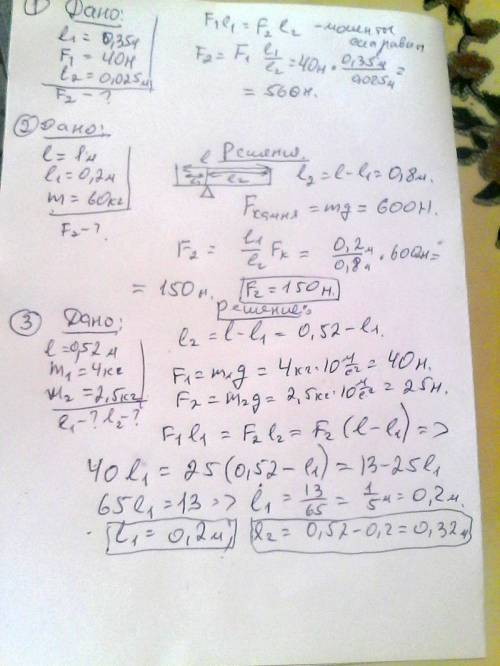 ① Дано:
l₁ = 0,35м
F₁ = 40Н
l₂ = 0,025м
F₂ - ?
F₁l₁ = F₂ l₂ - моменты
F₂ = F₁ l₁/l₂ = 40н · 0,35м/0,025м =
= 560н.
② Дано:
l = 1м
l₁ = 0,2м
m = 60кг
F₂ - ?
Решение.
l
l₁ l₂
l₂ = l - l₁ = 0,8м.
Fкамня = mg = 600Н.
F₂ = l₁/l₂ Fк = 0,2м/0,8м · 600н =
= 150н. F₂ = 150н.
③ Дано:
l = 0,52м
m₁ = 4кг
m₂ = 2,5кг
l₁ - ? l₂ - ?
Решение:
l₂ = l - l₁ = 0,52 - l₁.
F₁ = m₁g = 4кг · 10 м/с² = 40н.
F₂ = m₂g = 2,5кг · 10 м/с² = 25н.
F₁l₁ = F₂l₂ = F₂(l - l₁) =>
40l₁ = 25(0,52 - l₁) = 13 - 25l₁
65l₁ = 13 => l₁ = 13/65 = 1/5 м = 0,2м.
l₁ = 0,2м, l₂ = 0,52 - 0,2 = 0,32м